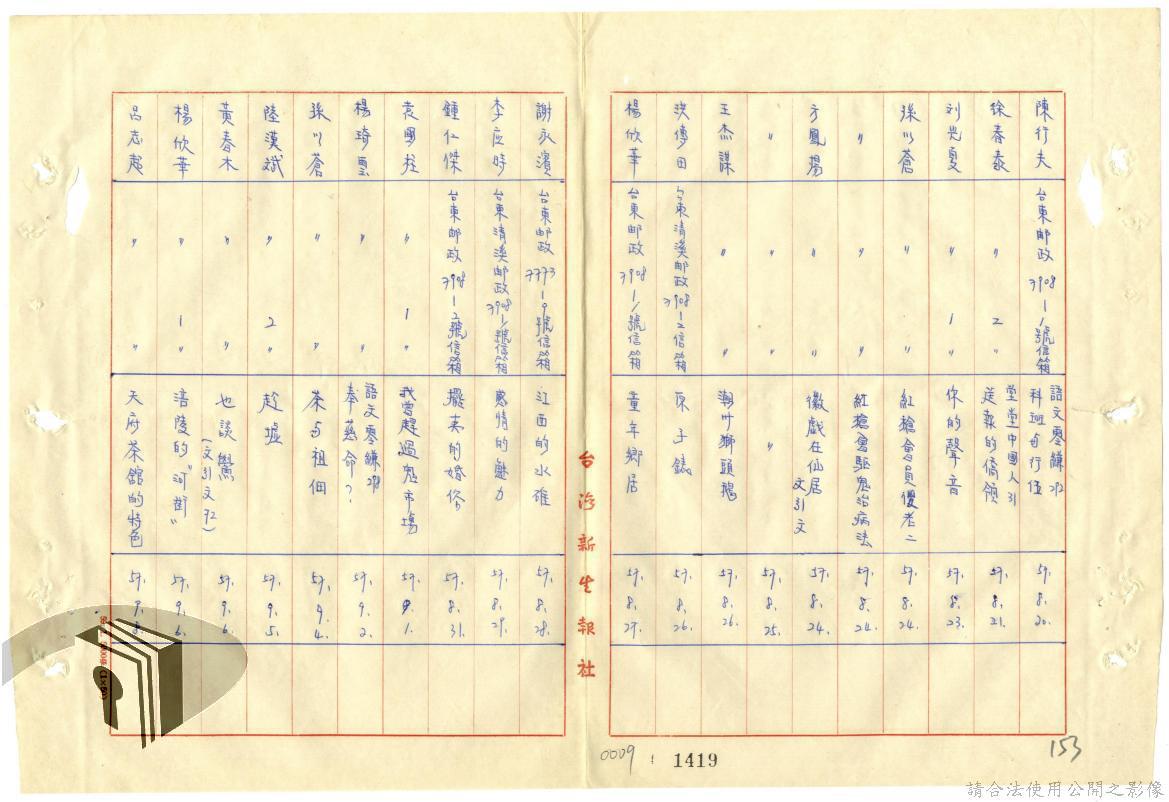 陳行夫 台東郵政7908-1/號信箱 語文零縑292 科班与行伍 57.8.20.
徐春泰 〃 2 〃 堂堂中國人引 送報的僑領 57.8.21.
刘光夏 〃 1 〃 你的聲音 57.8.23.
孫以蒼 〃 〃 紅槍會員傻老二 57.8.24.
〃 〃 〃 紅槍會驅鬼治病法 57.8.24.
方鳳揚 〃 〃 徽戲在仙居 文引文 57.8.24.
〃 〃 〃 〃 57.8.25.
王杰謀 〃 〃 潮州獅頭鵝 57.8.26.
洪傳田 台東清溪邮政7908-2信箱 原子錶 57.8.26.
楊欣華 台東邮政7908-1/號信箱 童年鄉居 57.8.27.
台灣新生報社
謝永濱 台東邮政7773-9號信箱 江西的水碓 57.8.28.
李应時 台東清溪邮政7908-1/號信箱 惠情的魅力 57.8.29.
鍾仁傑 台東邮政7908-2號信箱 擺夷的婚俗 57.8.31.
袁國柱 〃 1 〃 我曾趕過鬼市場 57.9.1.
楊琦雲 語文零縑298 奉慈命? 57.9.2.
孫以蒼 〃 〃 茶与祖佃 57.9.4.
陸漢斌 〃 2 〃 趁墟 57.9.5.
黃春木 〃 〃 也談鱉 (文引文92) 57.9.6.
楊欣華 〃 1 〃 涪陵的"河街" 57.9.6.
呂志超 〃 〃 天府茶館的特色 57.9.8.
0009 1419
153
請合法使用公開之影像